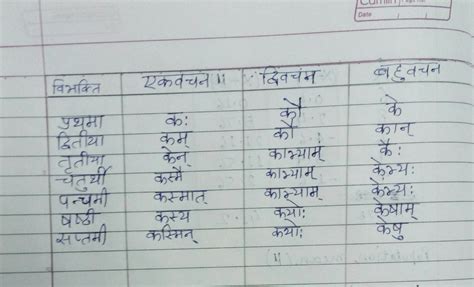 Camlin
Date
विभक्ति एकवचन ॥ द्विवचन बहुवचन
प्रथमा कः कौ के
द्वितीया कम् कौ कान्
तृतीया केन काभ्याम् कैः
चतुर्थी कस्मै काभ्याम् केभ्यः
पन्चमी कस्मात् काभ्याम् केभ्यः
षष्ठी कस्य कयोः केषाम्
सप्तमी कस्मिन् कयोः केषु